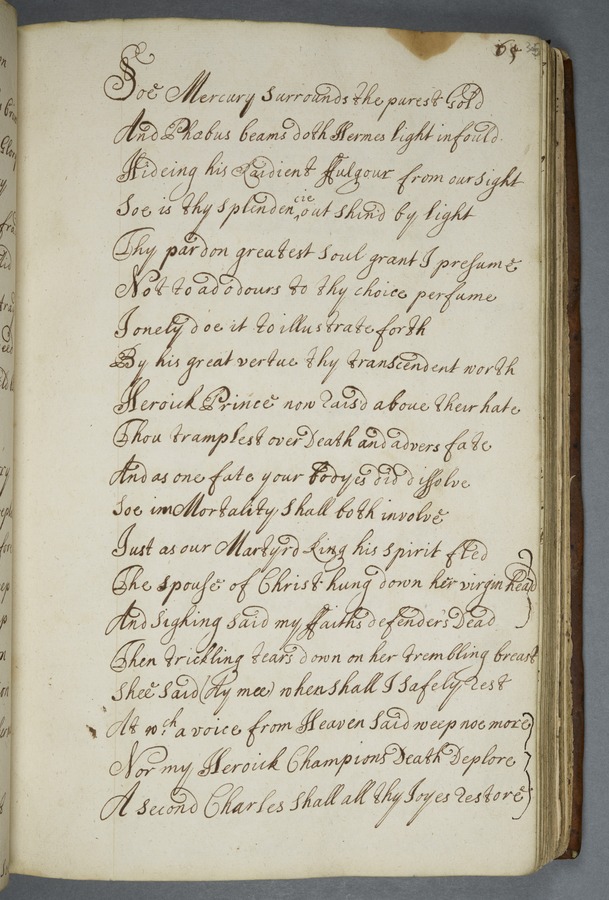 65
Soe Mercury surrounds the purest Gold
And Phœbus beams doth Hermes light infould
Hideing his Raidient ffulgour from our sight
Soe is thy splendencie out shind by light
Thy pardon greatest soul grant I presume
Not to ad odours to thy choice perfume
I onely doe it to illustrate forth
By his great vertue thy transcendent worth
Heroick Prince now rais'd aboue their hate
Thou tramplest over Death and advers fate
And as one fate your bodyes did dissolve
Soe imMortality shall both involve
Just as our Martyrd King his spirit fled
The spouse of Christ hung down her virgin head
And sighing said my ffaiths defender's Dead
Then trickling tears down on her trembling breast
Shee said (Ay mee) when shall I safely rest
At wch a voice from Heaven said weep noe more
Nor my Heroick Champions Death Deplore
A second Charles shall all thy Joyes restore